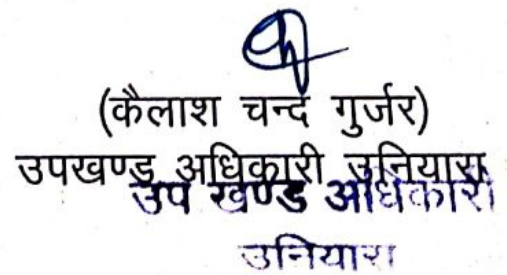 (कैलाश चन्द गुर्जर)
उपखण्ड अधिकारी उनियारा
उप खण्ड अधिकारी
उनियारा